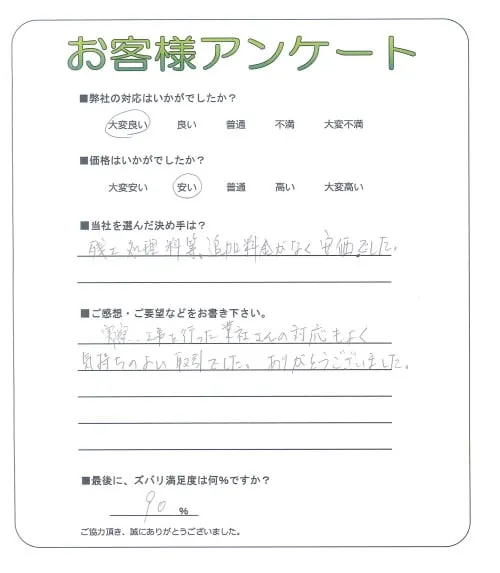 お客様アンケート
■弊社の対応はいかがでしたか？
大変良い 良い 普通 不満 大変不満
■価格はいかがでしたか？
大変安い 安い 普通 高い 大変高い
■当社を選んだ決め手は？
残土処理料等、追加料金がなく安価でした。
■ご感想・ご要望などをお書き下さい。
実際、工事を行った業社さんの対応もよく
気持ちのよい取引でした。ありがとうございました。
■最後に、ズバリ満足度は何%ですか？
90 %
ご協力頂き、誠にありがとうございました。